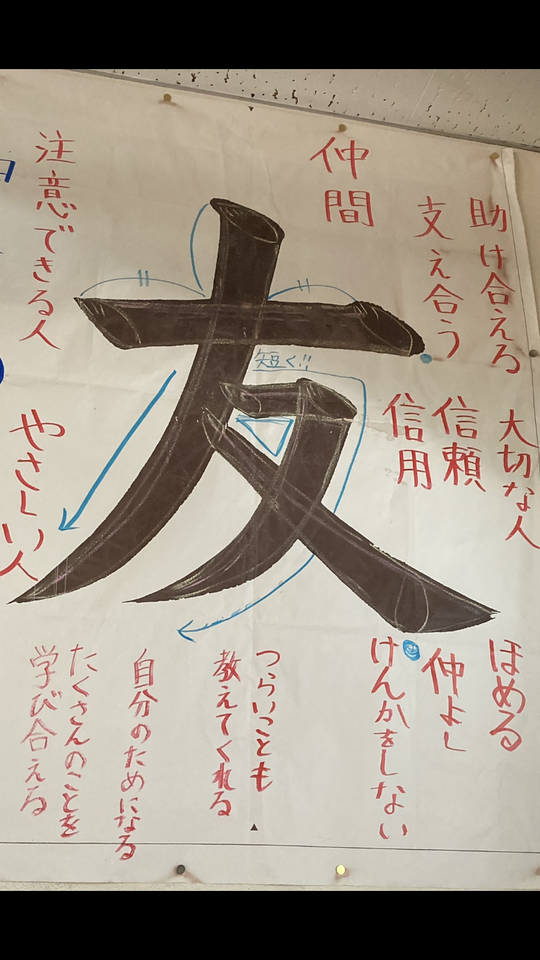 助け合える
支え合う
仲間
大切な人
信頼
信用
ほめる
仲よし
けんかをしない
つらいことも
教えてくれる
自分のためになる
たくさんのことを
学び合える
注意できる人
やさしい人
友
短く!!